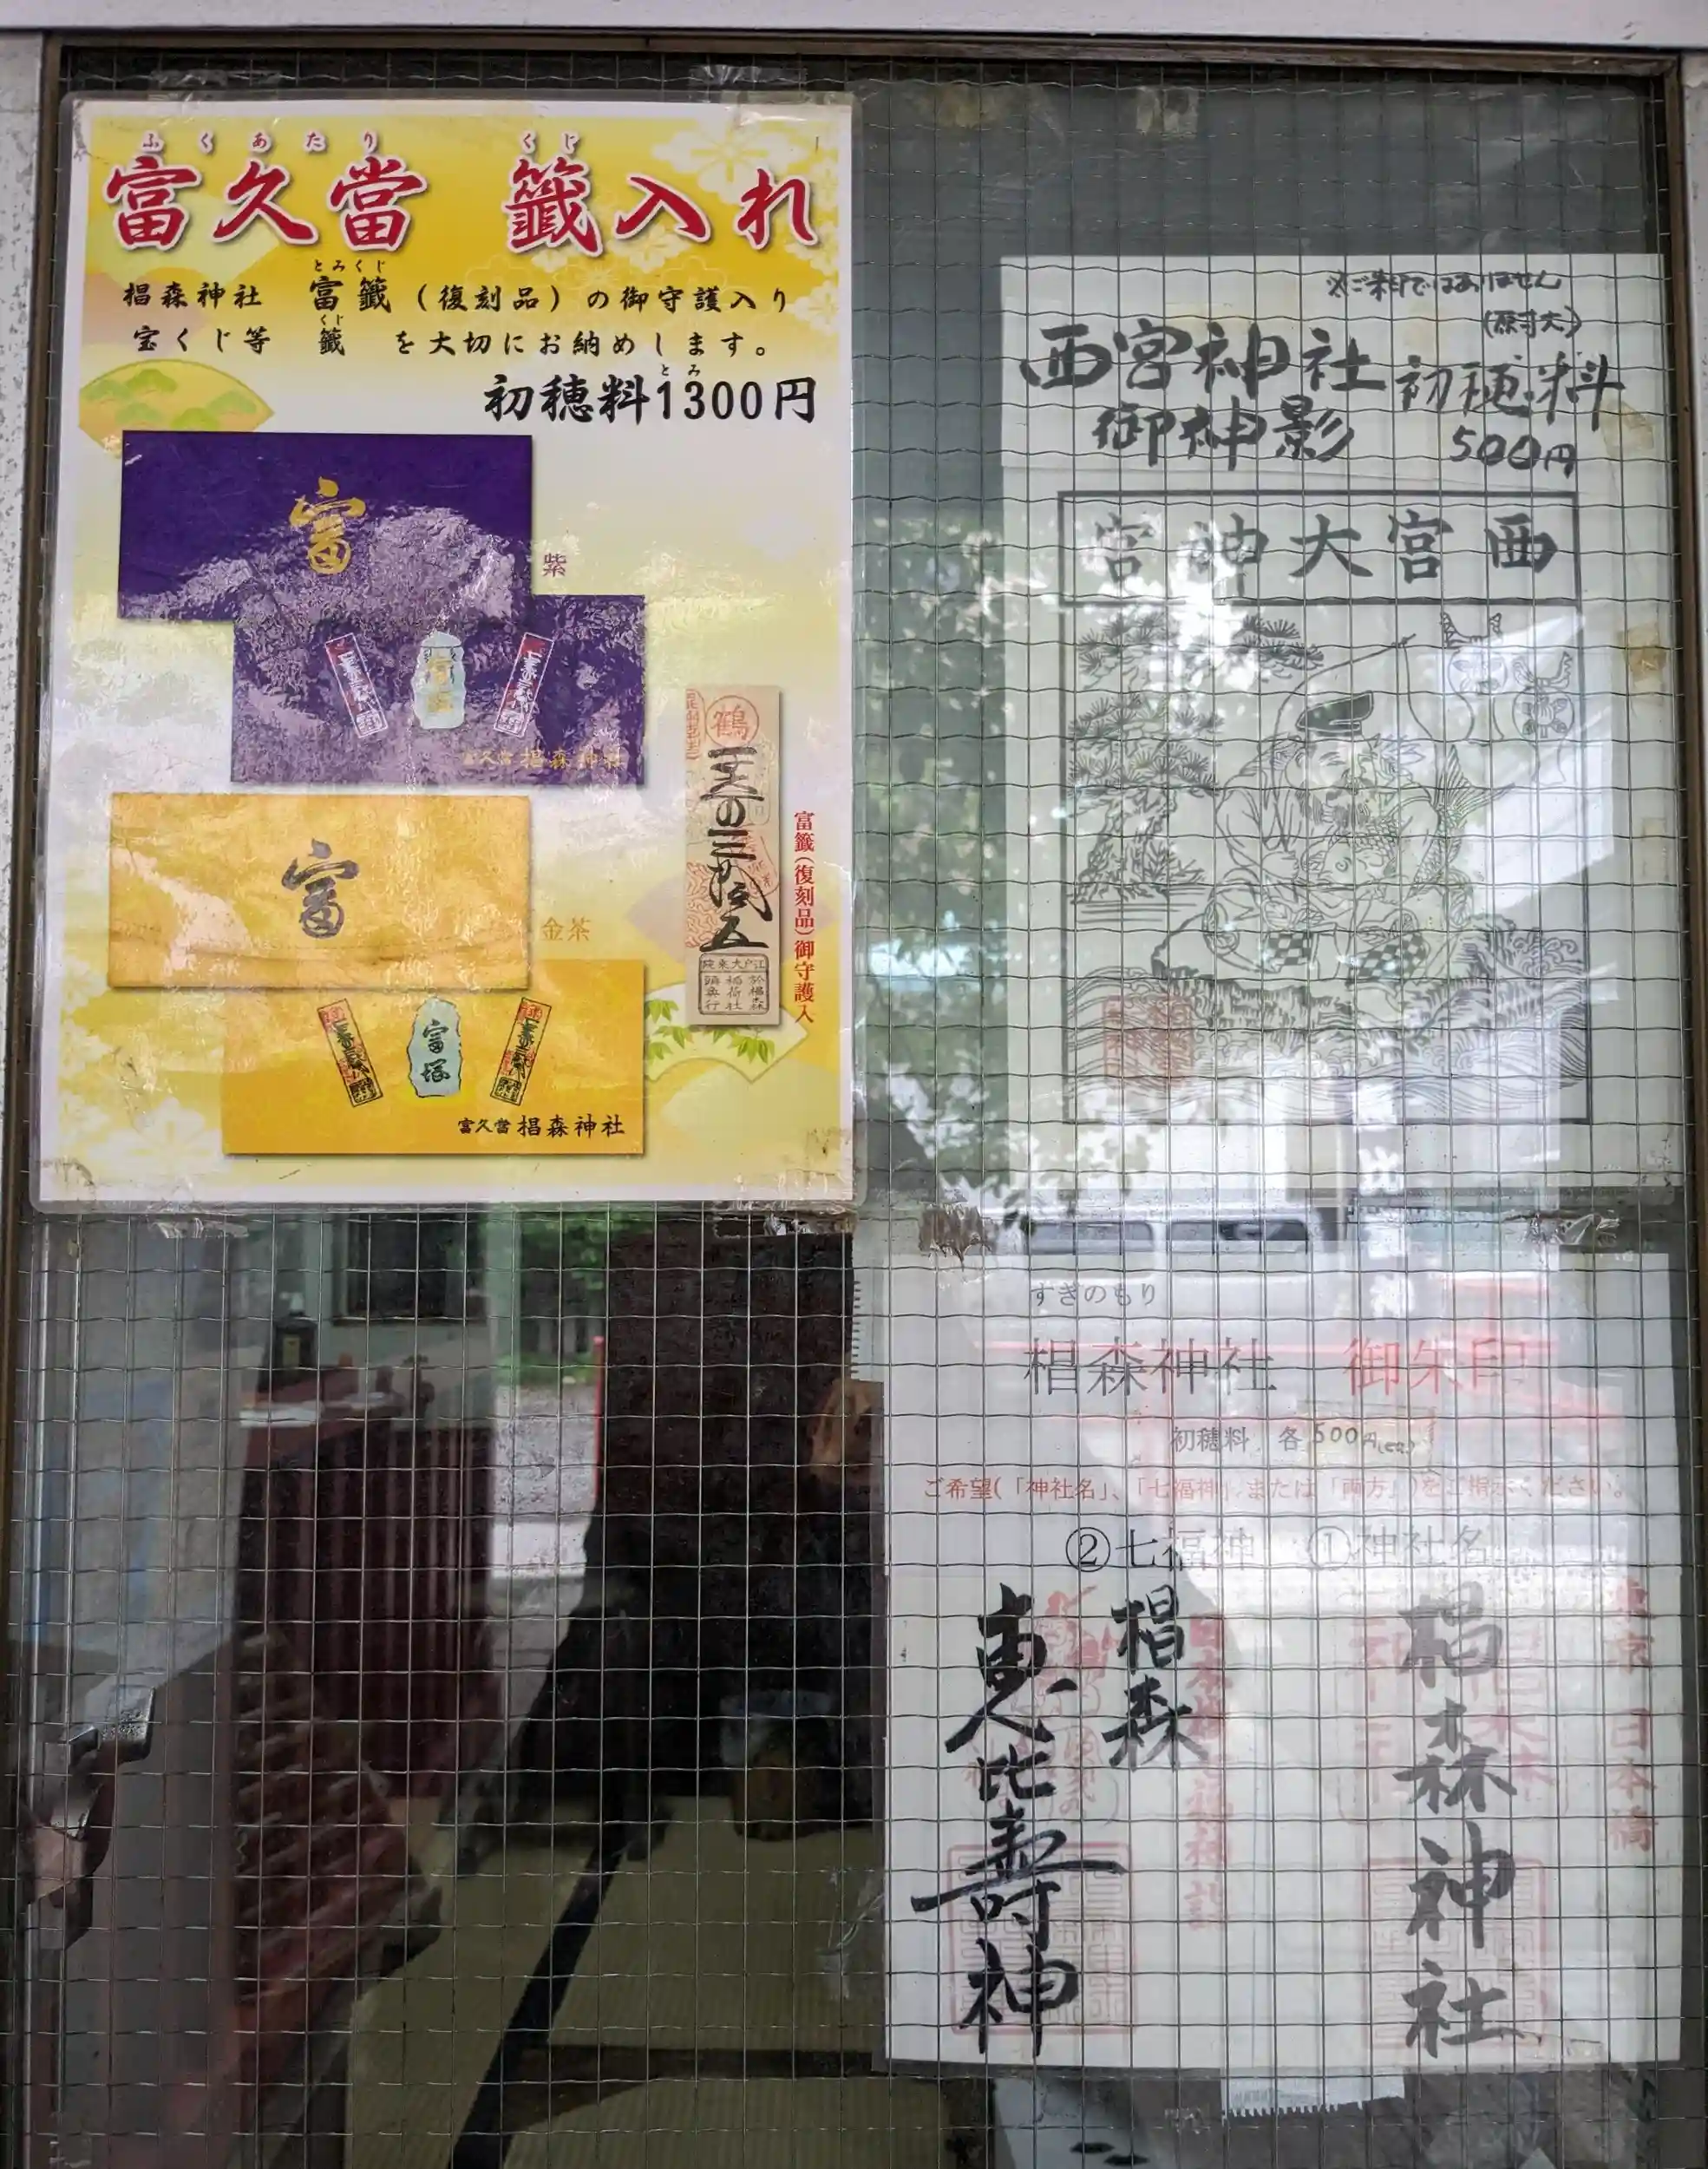 ふくあたり くじ
富久當 籤入れ
とみくじ
椙森神社 富籤(復刻品)の御守護入り
くじ
宝くじ等 籤 を大切にお納めします。
とみ
初穂料1300円
富
紫
富久當 椙森神社
富
金茶
富塚
富久當 椙森神社
鶴
江戸大東院
於椙森
稲荷社
頭興行
富籤(復刻品)御守護入
※ご朱印ではありません
(原寸大)
西宮神社 初穂料
御神影 500円
西宮大神宮
すぎのもり
椙森神社 御朱印
初穂料 各500円
ご希望(「神社名」、「七福神」、または「両方」)をご指示ください。
②七福神 ①神社名
東京 日本橋
椙森神社
椙森
恵比寿神